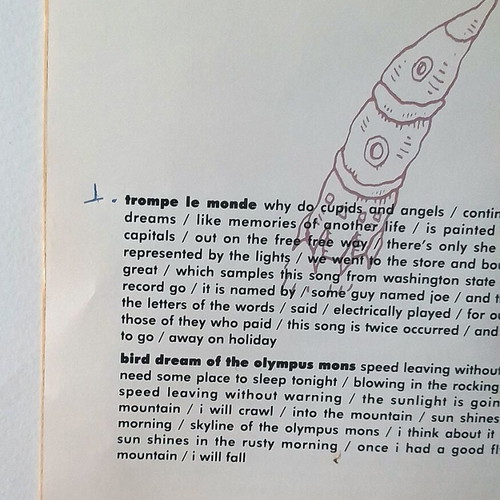 1. trompe le monde why do cupids and angels / contin
dreams / like memories of another life / is painted
capitals / out on the free free way / there's only she
represented by the lights / we went to the store and bou
great / which samples this song from washington state
record go / it is named by / some guy named joe / and t
the letters of the words / said / electrically played / for ou
those of they who paid / this song is twice occurred / and
to go / away on holiday
bird dream of the olympus mons speed leaving without
need some place to sleep tonight / blowing in the rocking
speed leaving without warning / the sunlight is goin
mountain / i will crawl / into the mountain / sun shines
morning / skyline of the olympus mons / i think about it
sun shines in the rusty morning / once i had a good fl
mountain / i will fall